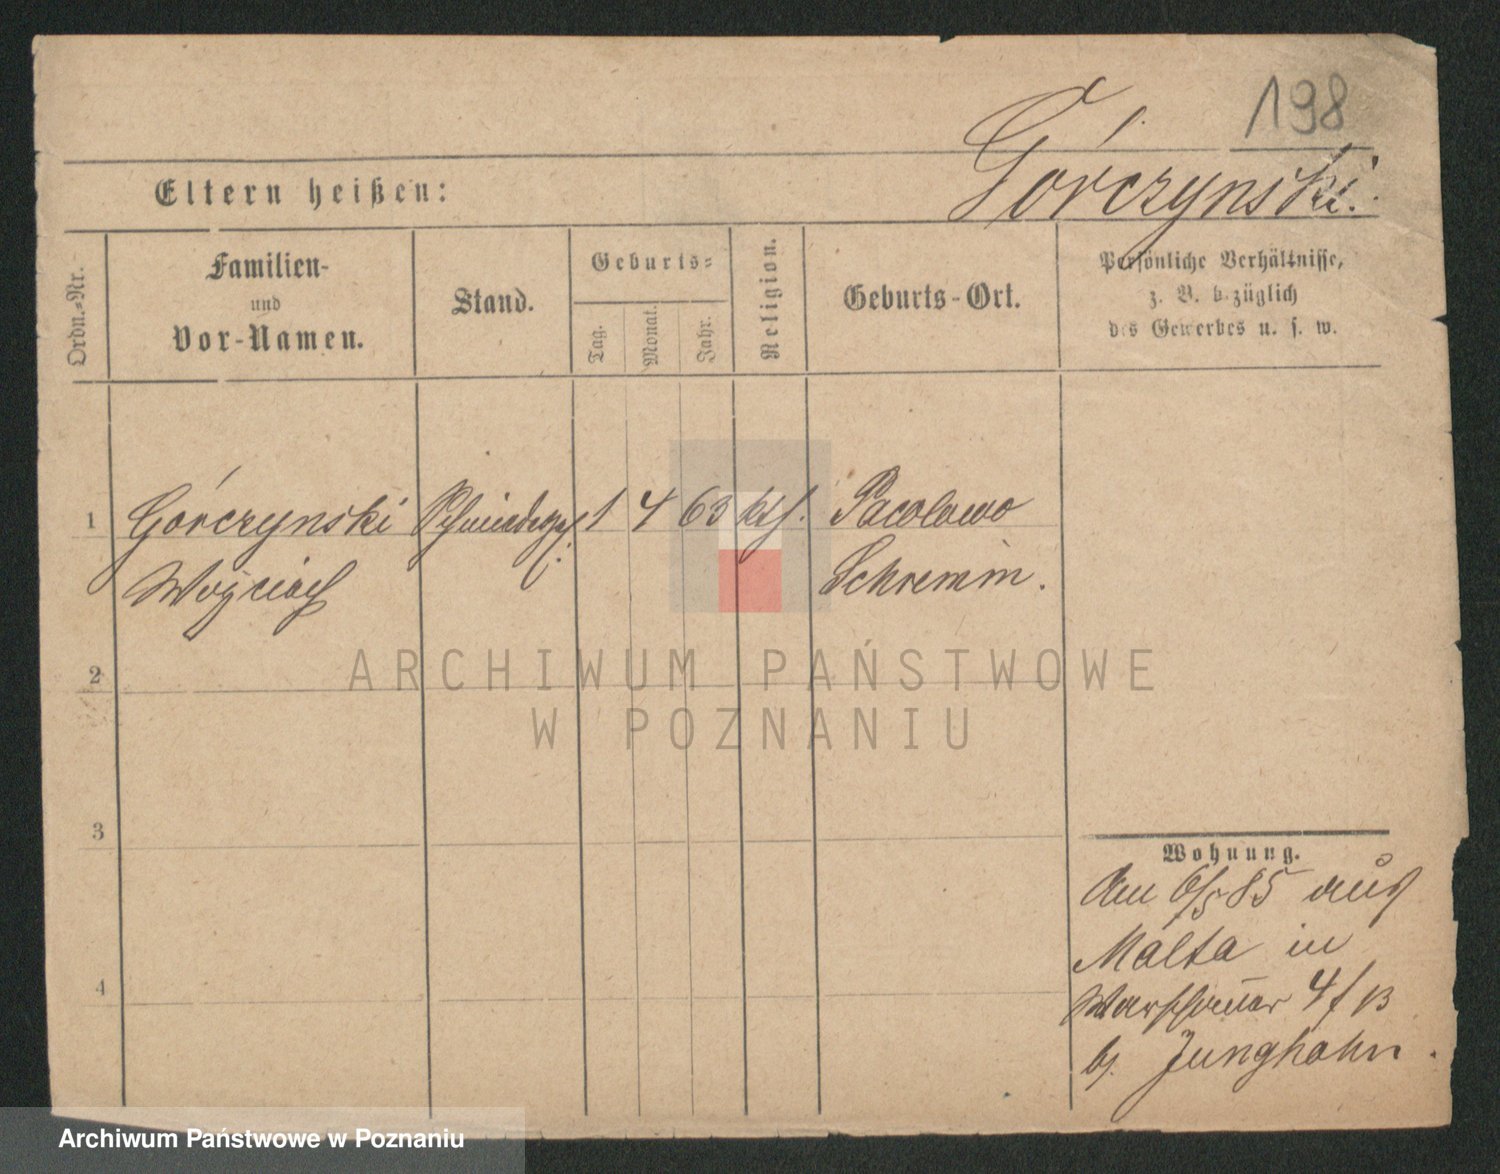 198
Górczynski.
Eltern heißen:
Ordn.-Nr.
Familien-
und
Vor-Namen.
Stand.
Geburts-
Tag.
Monat.
Jahr.
Religion.
Geburts-Ort.
Persönliche Verhältnisse,
z. B. bezüglich
des Gewerbes u. s. w.
1 Górczynski 1 4 63 kth. Pacolowo
Woyciech Schremm.
2
3
4
Wohnung.
Am 6/5 85 aus
Malta in
Warschauer 4/13
bj. Junghahn.
ARCHIWUM PAŃSTWOWE
W POZNANIU
Archiwum Państwowe w Poznaniu